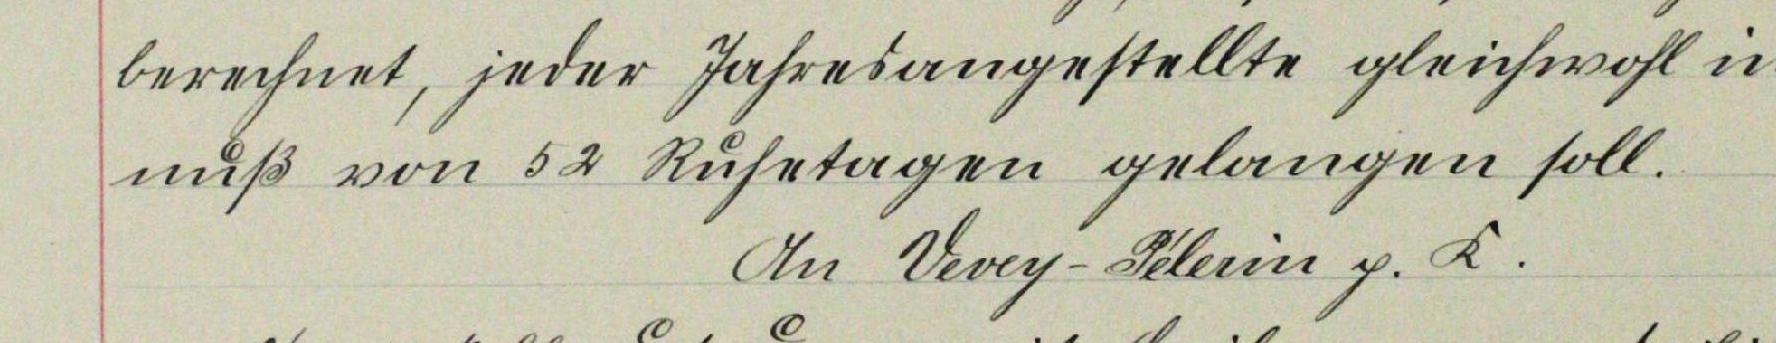 berechnet, jeder Jahresangestellte gleichwohl
nuß von 52 Ruhetagen gelangen soll.
An Vevey-Pélerin p. K.